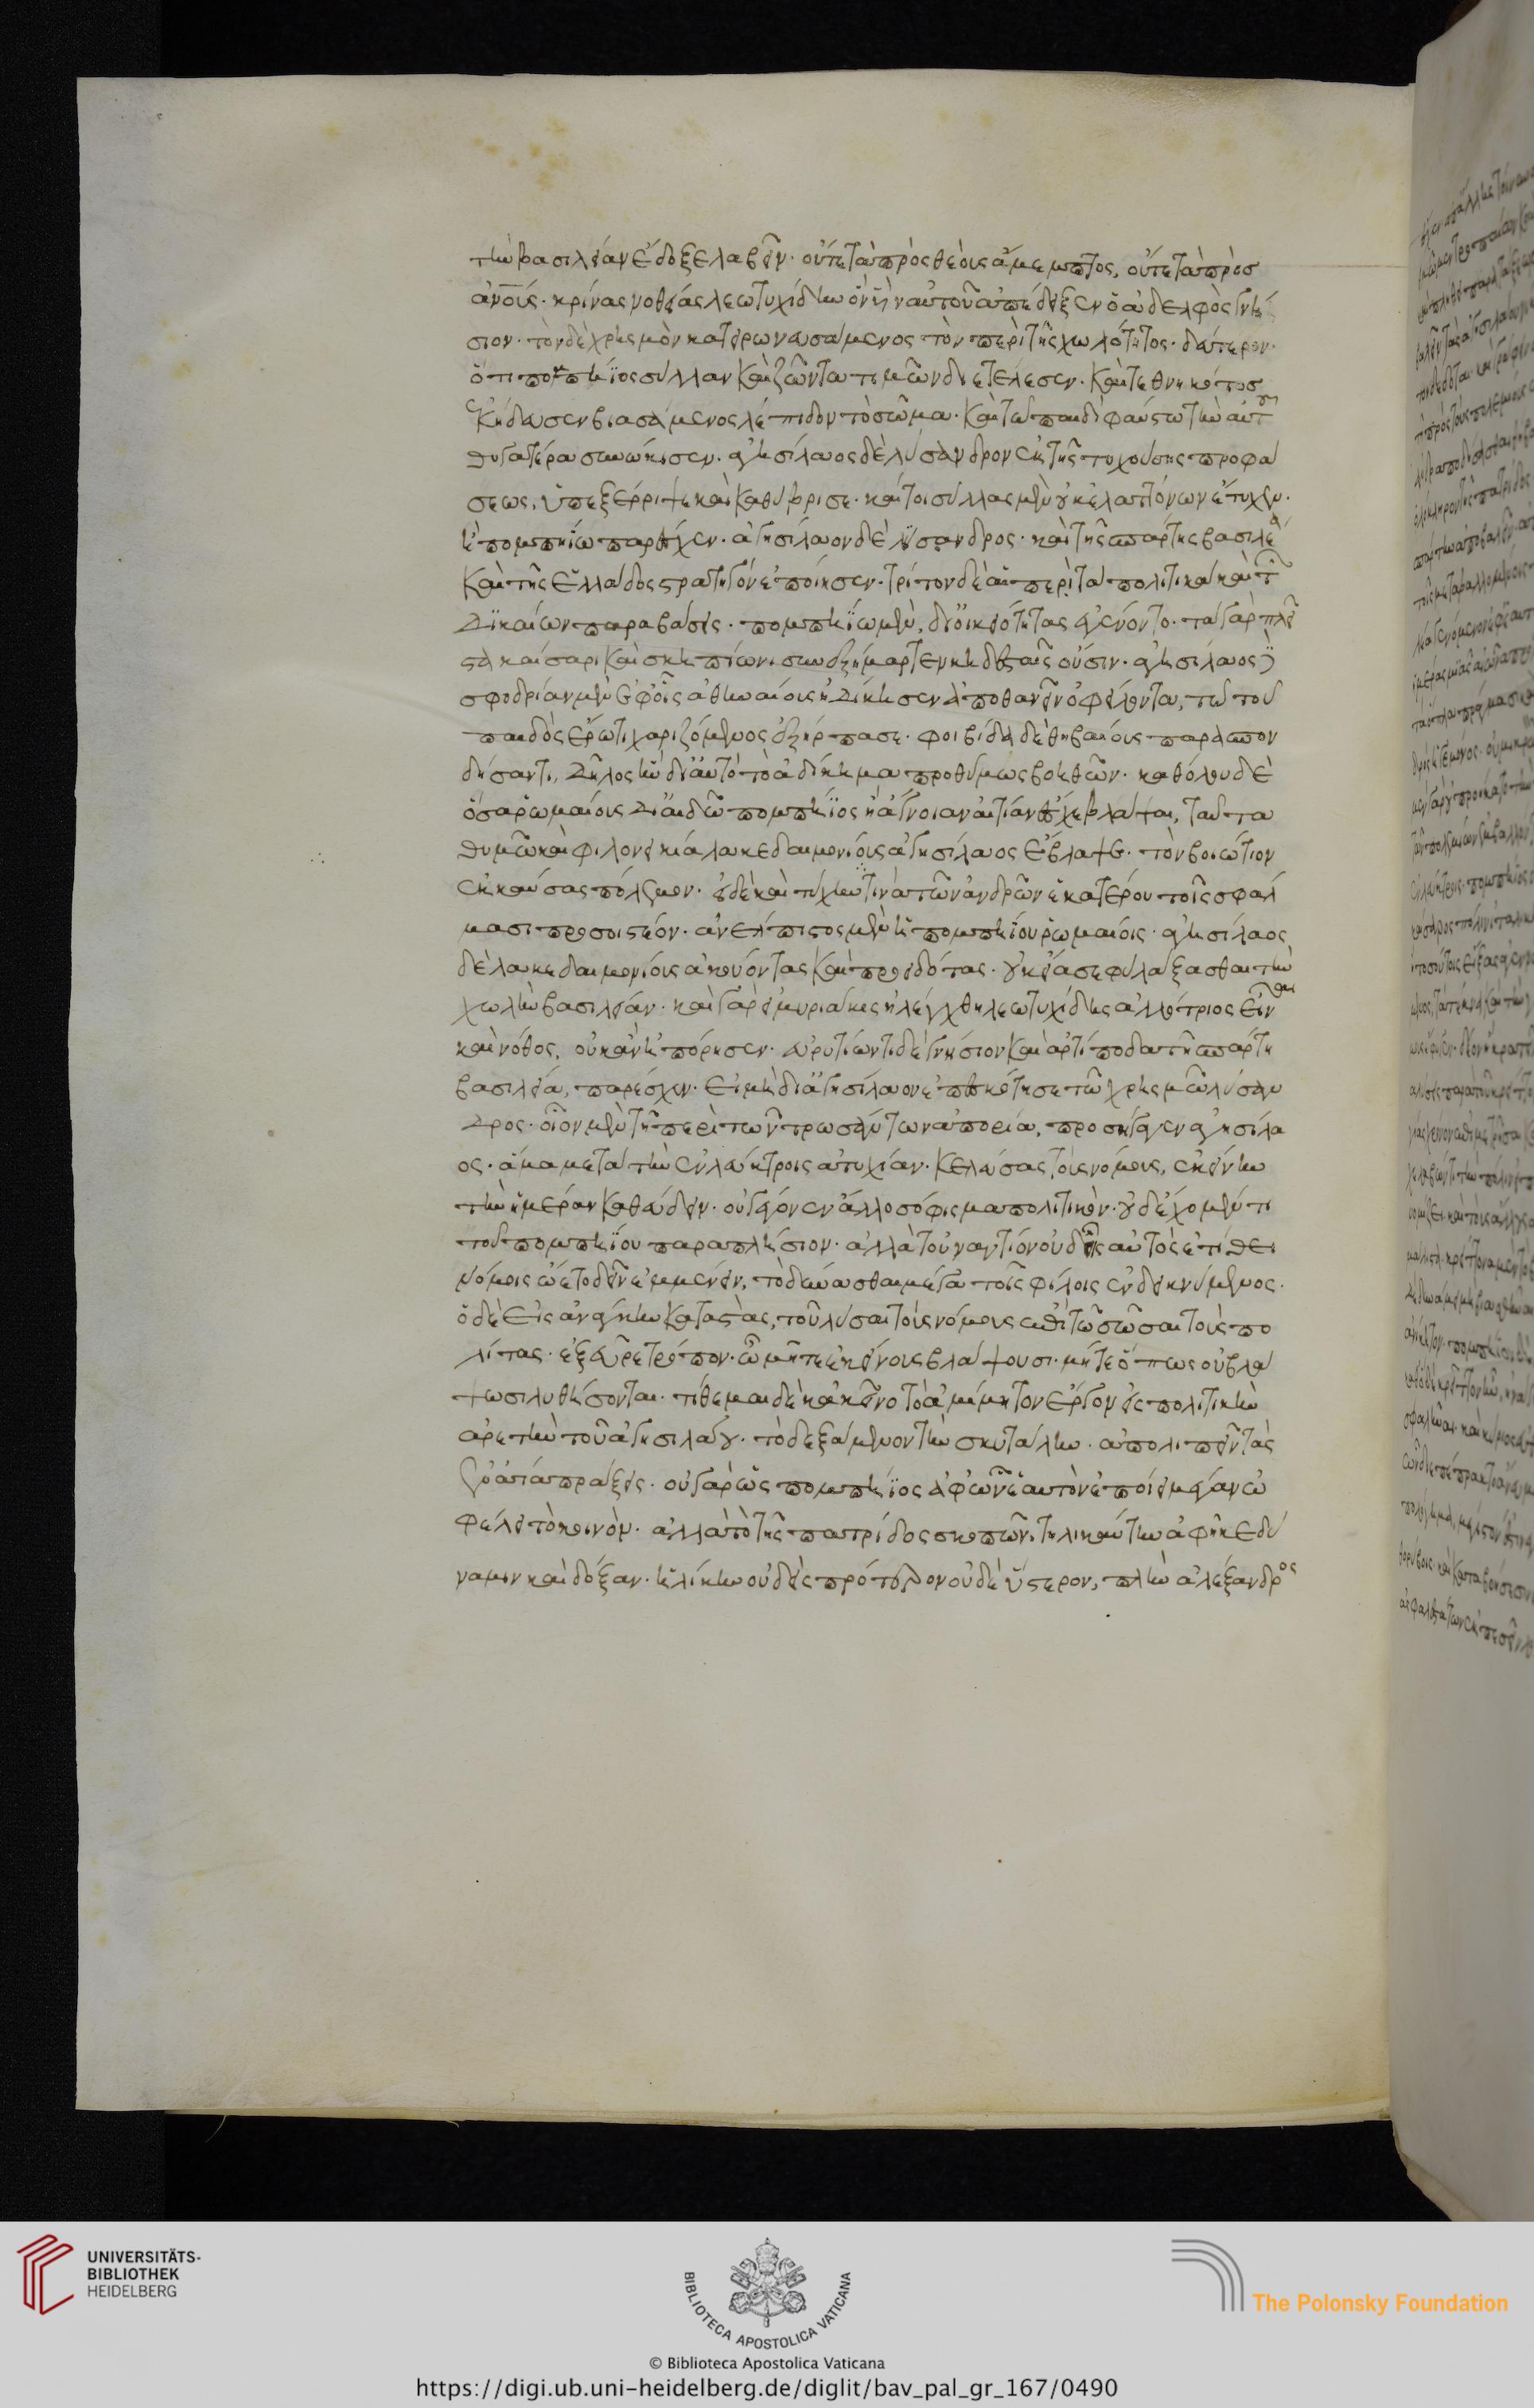 τὴν βασιλείαν ἔδοξε λαβεῖν· οὔτε τὰ πρὸς θεοὺς ἄμεμπτος, οὔτε τὰ πρὸσ
ἀνοῦς· κρίνας νοθείας λεωτυχίδην ὃν ὑν αὐτοῦ ἀπέδειξεν ὁ ἀδελφὸς γνή
σιον· τὸν δὲ χρησμὸν κατειρωνευσάμενος τὸν περὶ τῆς χωλότητος· δεύτερον·
ὅτι πομπήϊος σύλλαν καὶ ζῶντα τιμῶν διετέλεσεν· καὶ τεθνηκότοσ
ἐκήδευσεν βιασάμενος λέπιδον τὸ σῶμα· καὶ τῶ παιδὶ φαύστω τὴν αὑτ
θυγατέρα συνώκισεν· ἀγησίλαος δὲ λύσανδρον ἐκ τῆς τυχούσης προφά
σεως, ὑπεξέρριψε καὶ καθύβρισε· καίτοι σύλλας μὲν οὐκ ἐλαττόνων ἔτυχεν·
ἢ πομπηίω παρέσχεν· ἀγησίλαον δὲ λύσανδρος· καὶ τῆς σπάρτης βασιλέα
καὶ τῆς ἑλλάδος στρατηγὸν ἐποίησεν· τρίτον δὲ αἱ περὶ τὰ πολιτικὰ καὶ τ
δικαίων παραβάσεις· πομπηίω μὲν, δι οἰκειότητας ἐγένοντο· τὰ γὰρ πλεῖ
στα καίσαρι καὶ σκηπίωνι συνεξήμαρτεν κηδεσταῖς οὖσιν· ἀγησίλαος δὲ
σφοδρίαν μὲν ἐφ οἷς ἀθηναίους ἠδίκησεν ἀποθανεῖν ὀφείλοντα, τῶ τοῦ
παιδὸς ἔρωτι χαριζόμενος ἐξήρπασε· φοιβίδα δὲ θηβαίους παρασπον
δήσαντι, δῆλος ἦν δι αὐτὸ τὸ ἀδίκημα προθύμως βοηθῶν· καθόλου δὲ
ὅσα ῥωμαίους δι αἰδῶ πομπήϊος ἢ ἄγνοιαν αἰτίαν ἔσχε βλάψαι, ταῦτα
θυμῶ καὶ φιλονεικία λακεδαιμονίους ἀγησίλαος ἔβλαψε· τὸν βοιώτιον
ἐκκαύσας πόλεμον· εἰ δὲ καὶ τύχην τινὰ τῶν ἀνδρῶν ἑκατέρου τοῖς σφάλ
μασι προσοιστέον· ἀνέλπιστος μὲν ἡ πομπηίου ῥωμαίοις· ἀγησίλαος
δὲ λακεδαιμονίους ἀκούοντας καὶ προειδότας· οὐκ εἴασε φυλάξασθαι τὴν
χωλὴν βασιλείαν· καὶ γὰρ εἰ μυριάκις ἠλέγχθη λεωτυχίδης ἀλλότριος εἶναι
καὶ νόθος, οὐκ ἂν ἠπόρησεν· εὐρυτιώντιδε γνήσιον καὶ ἀρτίποδα τῆ σπάρτη
βασιλέα, παρέσχεν· εἰ μὴ δι ἀγησίλαον ἐπεσκότησε τῶ χρησμῶ λύσαν
δρος· οἷον μὲν τῆ περὶ τῶν τρεσάντων ἀπορία, προσήγαγεν ἀγησίλα
ος· ἅμα μετὰ τὴν ἐν λεύκτροις ἀτυχίαν· κελεύσας τοὺς νόμους, ἐκείνην
τὴν ἡμέραν καθεύδειν· οὐ γέγονεν ἄλλο σόφισμα πολιτικὸν· οὐδ ἔχομέν τι
τοῦ πομπηίου παραπλήσιον· ἀλλὰ τοὐναντίον οὐδ οἷς αὐτὸς ἐτίθει
νόμοις ὤετο δεῖν ἐμμένειν, τὸ δύνασθαι μέγα τοῖς φίλοις ἐνδεικνύμενος·
ὁ δὲ εἰς ἀνάγκην καταστὰς, τοῦ λῦσαι τοὺς νόμους ἐπὶ τῶ σῶσαι τοὺς πο
λίτας· ἐξεῦρε τρόπον· ὧ μήτε ἐκείνους βλάψουσι· μήτε ὅπως οὐ βλά
ψωσι λυθήσονται· τίθεμαι δὲ κἀκεῖνο τὸ ἀμίμητον ἔργον εἰς πολιτικὴν
ἀρετὴν τοῦ ἀγησιλάου· τὸ δεξάμενον τὴν σκυτάλην· ἀπολιπεῖν τὰς
ἐν ἀσία πράξεις· οὐ γὰρ ὡς πομπήϊος ἀφ ὧν ἑαυτὸν ἐποίει μέγαν ὠ
φέλει τὸ κοινὸν· ἀλλὰ τὸ τῆς πατρίδος σκοπῶν· τηλικαύτην ἀφῆκε δύ
ναμιν καὶ δόξαν· ἡλίκην οὐδεὶς πρότερον οὐδὲ ὕστερον, πλὴν ἀλέξανδρος
UNIVERSITÄTS-
BIBLIOTHEK
HEIDELBERG
BIBLIOTECA APOSTOLICA VATICANA
The Polonsky Foundation
© Biblioteca Apostolica Vaticana
https://digi.ub.uni-heidelberg.de/diglit/bav_pal_gr_167/0490